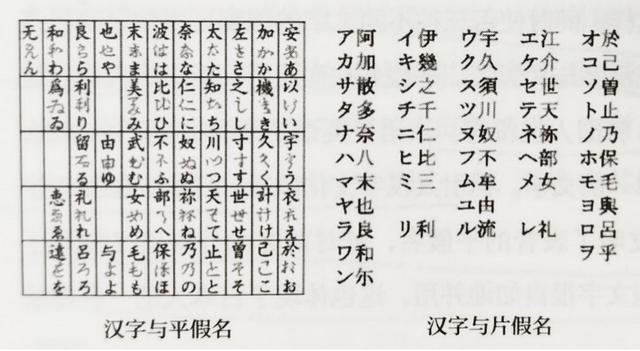 安ああ 以いい 宇うう 衣ええ 於おお
加かか 機きき 久くく 計けけ 己ここ
左ささ 之しし 寸すす 世せせ 曽そそ
太たた 知ちち 川つつ 天てて 止とと
奈なな 仁にに 奴ぬぬ 祢ねね 乃のの
波はは 比ひひ 不ふふ 部へへ 保ほほ
末まま 美みみ 武むむ 女めめ 毛もも
也やや 由ゆゆ 与よよ
良らら 利りり 留るる 礼れれ 呂ろろ
和わわ 爲ゐゐ 恵ゑゑ 遠をを
无んん
汉字与平假名
於己曽止乃保毛與呂乎
オコソトノホモヨロヲ
江介世天祢部女 礼
エケセテネヘメ レ
宇久須川奴不牟由流
ウクスツヌフムユル
伊幾之千仁比三 利
イキシチニヒミ リ
阿加散多奈八末也良和尓
アカサタナハマヤラワン
汉字与片假名